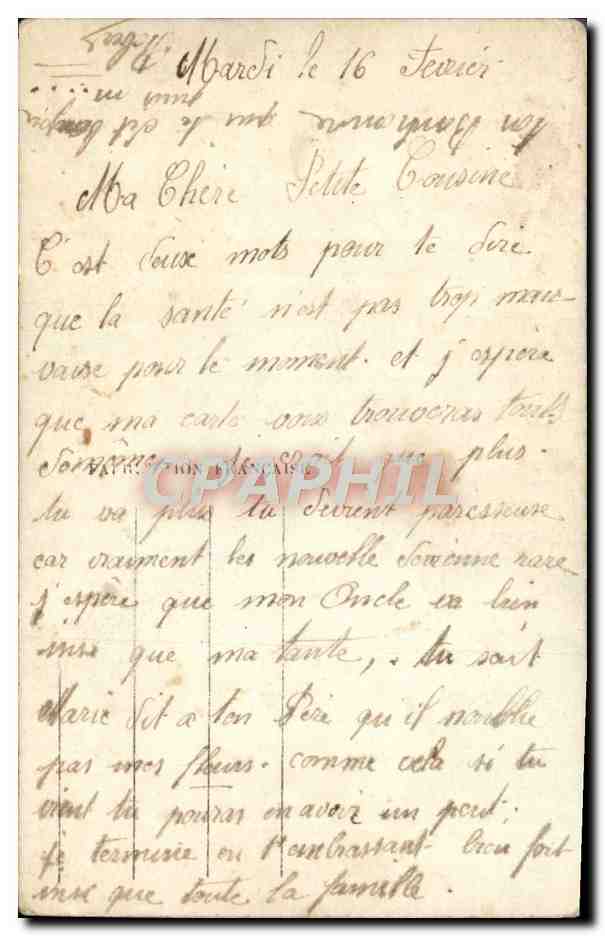 Mardi le 16 Fevrier
Ton Parrain qui le
Ma Chère Petite Cousine
C'est deux mots pour te dire
que la santé n'est pas trop mau-
vaise pour le moment. et j'espère
que ma carte vous trouveras touts
de même. je sait que plus.
FABRICATION FRANÇAISE
CPAPHIL
tu va plus tu devient paresseuse
car vraiment les nouvelle devienne rare
j'espère que mon Oncle va bien
insi que ma tante, . tu sait
Marie dit a ton Père qu'il noublie
pas mes fleurs. comme cela si tu
vient tu pouras en avoir un peut.
je termine en t'embrassant bien fort
insi que toute la famille.